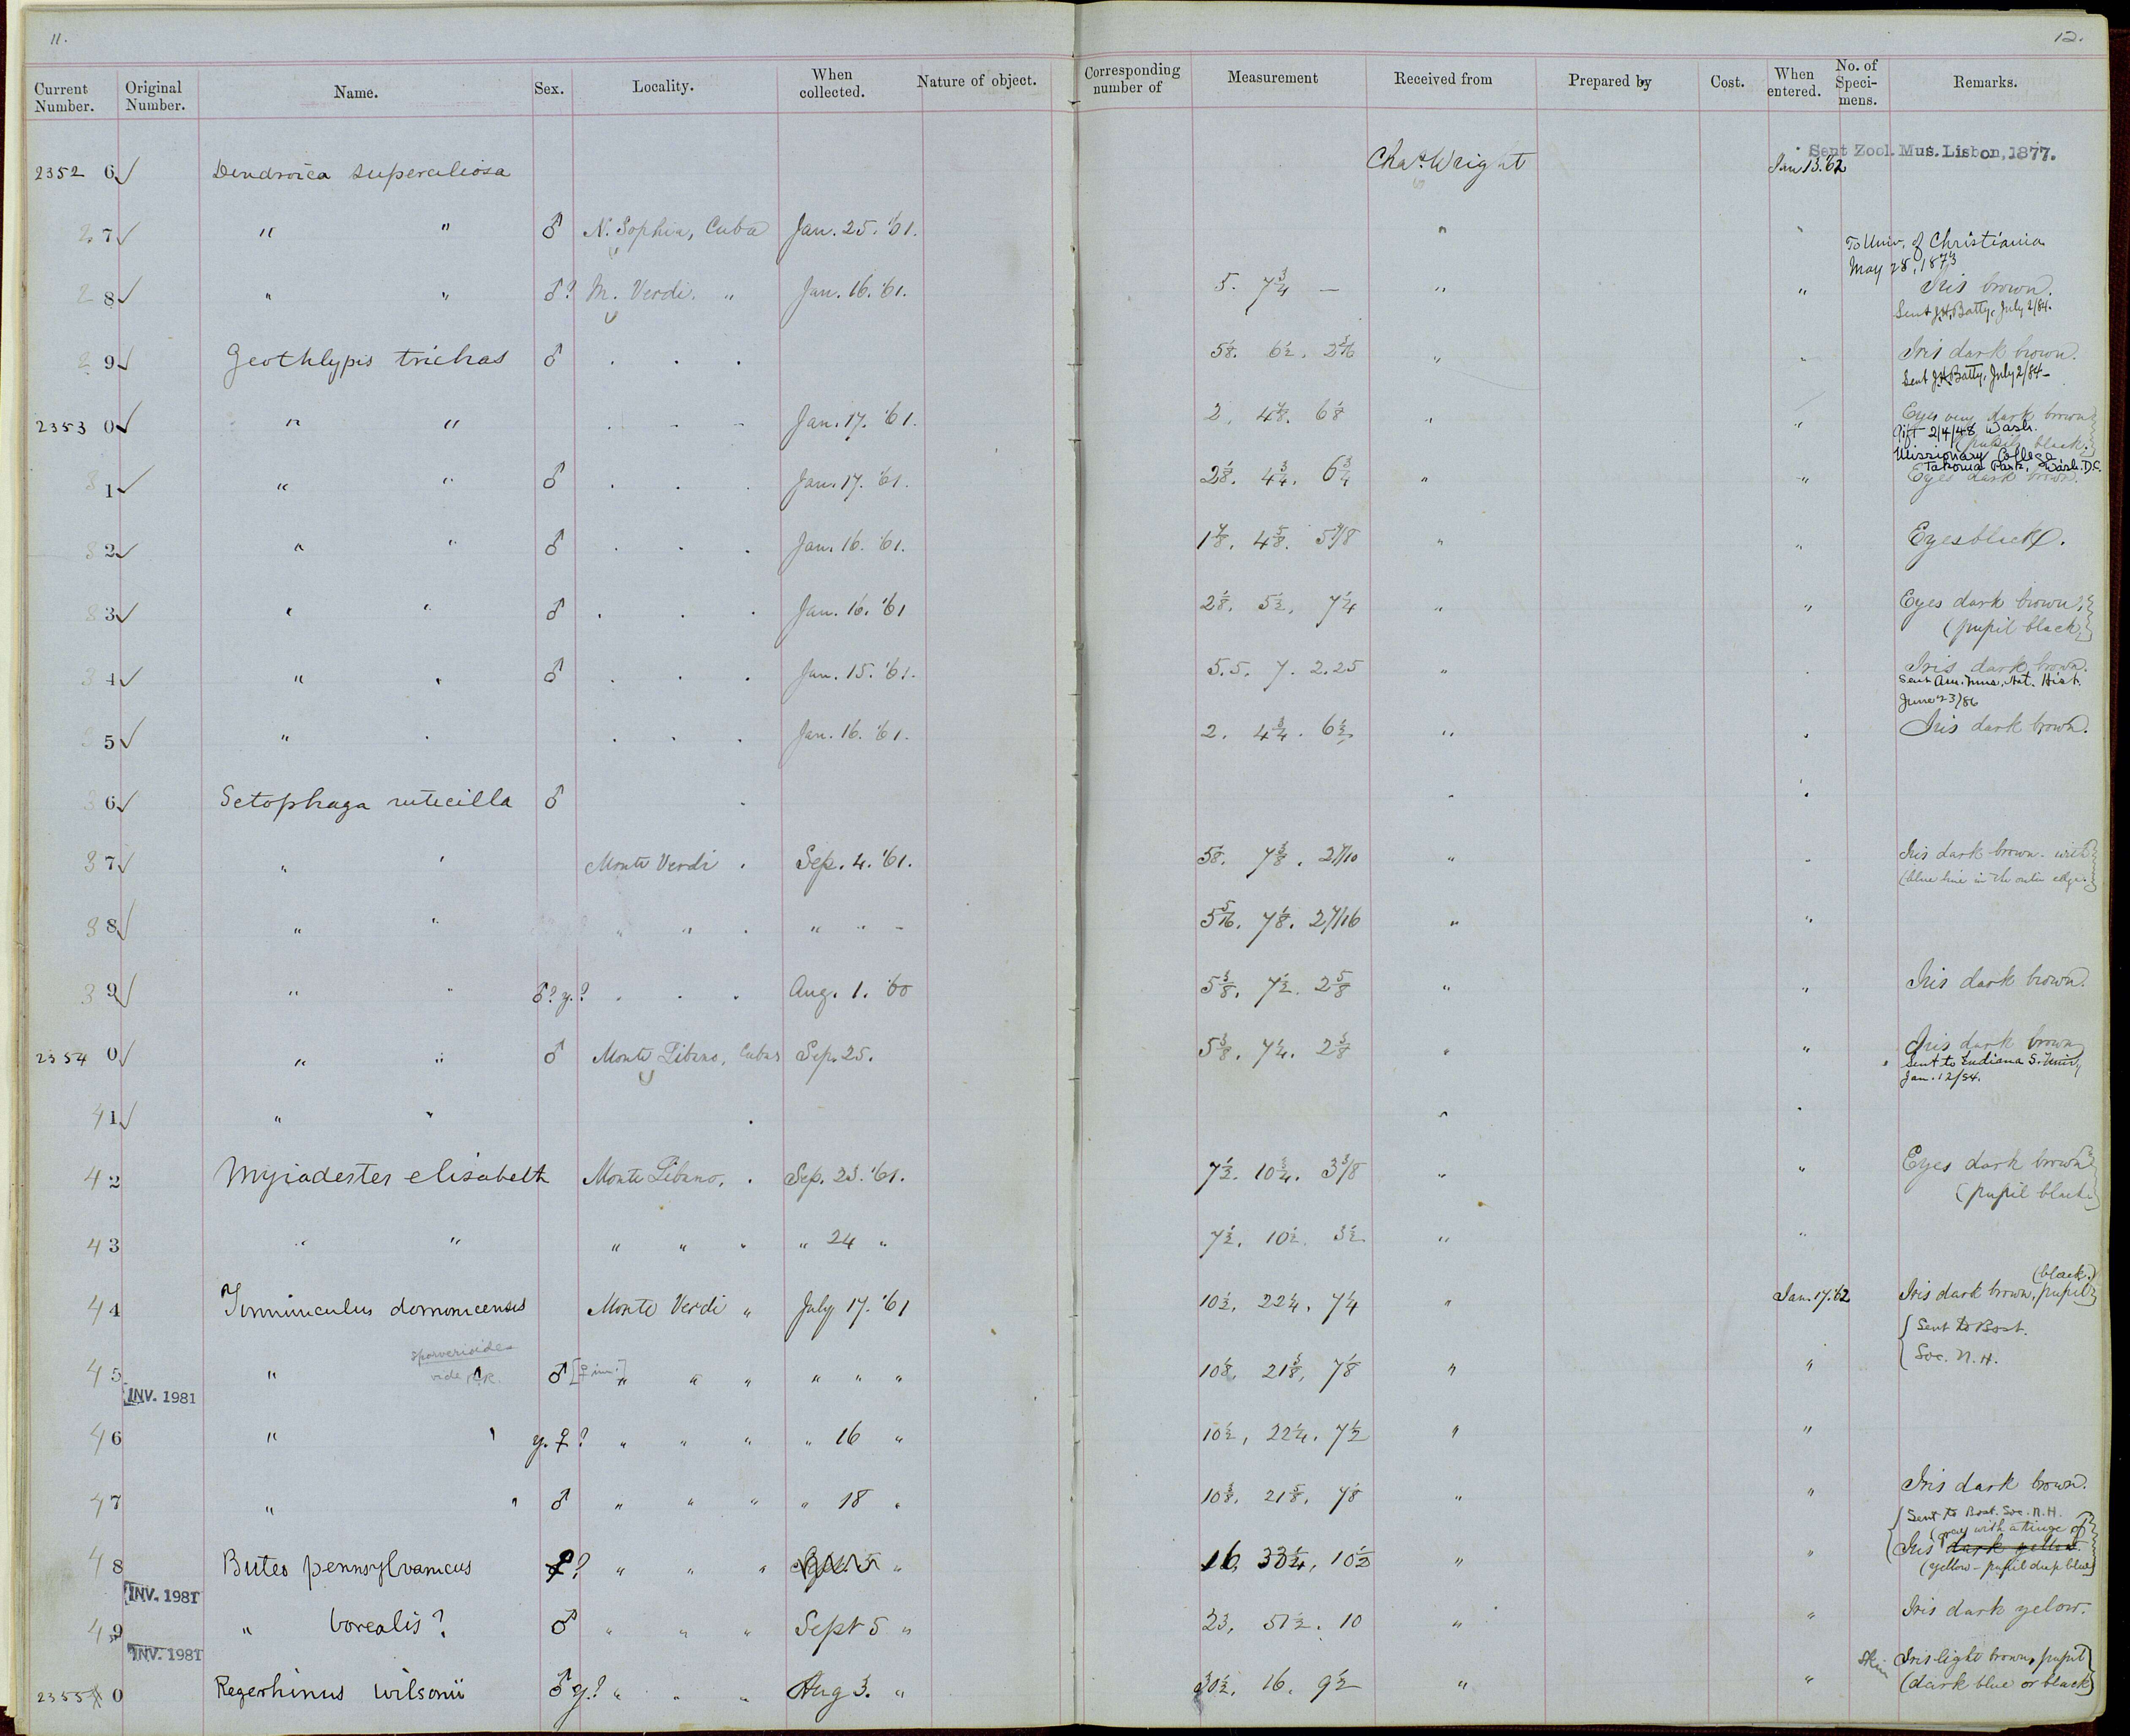 11.
12.
Current Number. Original Number. Name. Sex. Locality. When collected. Nature of object. Corresponding number of Measurement Received from Prepared by Cost. When entered. No. of Speci-mens. Remarks.
Sent Zool. Mus. Lisbon, 1877.
2352 6 ✓ Dendroica superciliosa Chas. Wright Jan 13. '62
2 7 ✓ " " ♂ N. Sophia, Cuba Jan. 25. '61. " "
To Univ. of Christiania
May 28, 1873
2 8 ✓ " " ♂? M. Verdi. " Jan. 16. '61. 5. 7 3/4 — " " Iris brown.
Sent J.H. Batty, July 2/84.
2 9 ✓ Geothlypis trichas ♂ . . . 5 1/8. 6 1/2. 2 5/16 " " Iris dark brown.
Sent J.H. Batty, July 2/84 -
2353 0 ✓ " " . - - Jan. 17. '61. 2, 4 7/8. 6 1/8 " " Eyes very dark brown
Gift 2/4/48 Wash.
(pupil black.)
Missionary College
Takoma Park, Wash. D.C.
3 1 ✓ " " ♂ . . . Jan. 17. '61. 2 1/8. 4 3/4. 6 3/4 " " Eyes dark brown.
3 2 ✓ " " ♂ . . . Jan. 16. '61. 1 7/8. 4 5/8. " " Eyes black.
3 3 ✓ " " ♂ . . . Jan. 16. '61 2 1/8. 5 1/2. 7 1/4 " " Eyes dark brown,
(pupil black,)
3 4 ✓ " " ♂ . . . Jan. 15. '61. 5.5. 7. 2.25 " . Iris dark brown.
Sent Am. Mus. Nat. Hist.
June 23/86
3 5 ✓ " . . . . Jan. 16. '61. 2. 4 3/4. 6 1/2. " " Iris dark brown.
3 6 ✓ Setophaga ruticilla ♂ . " "
3 7 ✓ " " Monte Verdi . Sep. 4. '61. 5 1/8. 7 3/8. " " Iris dark brown - with
(blue line in the outer edge.)
3 8 ✓ " " " " . " " - 5 5/16. 7 1/8. 2 7/16 " "
3 9 ✓ " " ♂? y.? . . . Aug. 1. '60 5 3/8. 7 1/2. 2 5/8 " " Iris dark brown.
2354 0 ✓ " " ♂ Monte Libano, Cuba Sep. 25. 5 3/8. 7 1/4. 2 3/8 " " Iris dark brown
Sent to Indiana S. Univ.,
Jan. 12/84.
4 1 ✓ " " . " .
4 2 Myiadestes elisabeth Monte Libano, . Sep. 23. '61. 7 1/2. 10 3/4. 3 3/8 " " Eyes dark brown
(pupil black)
4 3 " " " " " " 24 " 7 1/2. 10 1/2. 3 1/2. " "
(black.)
4 4 Tinnunculus dominicensis Monte Verdi " July 17. '61 10 1/2. 22 1/4. 7 1/4 " Jan. 17. '62 Iris dark brown, pupil
sparverioides
{ Sent to Bost.
Soc. N. H.
vide R.R.
4 5 " ♂ [♀ im.] " " " " " " 10 1/8. 21 3/8. 7 1/8 " "
INV. 1981
4 6 " " y. ♀? " " " " 16 " 10 1/2, 22 1/4. 7 1/2 " "
4 7 " " ♂ " " " " 18 " 10 3/8. 21 5/8. 7 1/8 " " Iris dark brown.
{ Sent to Bost. Soc. N. H.
(gray with a tinge of
4 8 Buteo pennsylvanicus ♀? " " " " 16, 33 1/4, 10 1/2 " " Iris dark yellow
(yellow - pupil deep blue)
INV. 1981
4 9 " borealis? ♂ " " " Sept 5 " 23, 51 1/2. 10 " " Iris dark yelow.
INV. 1981
2355 0 Regerhinus wilsonii ♂ y.? " " " Aug 3. " 30 1/2. 16. 9 1/2 " " skin Iris light brown, pupil
(dark blue or black)